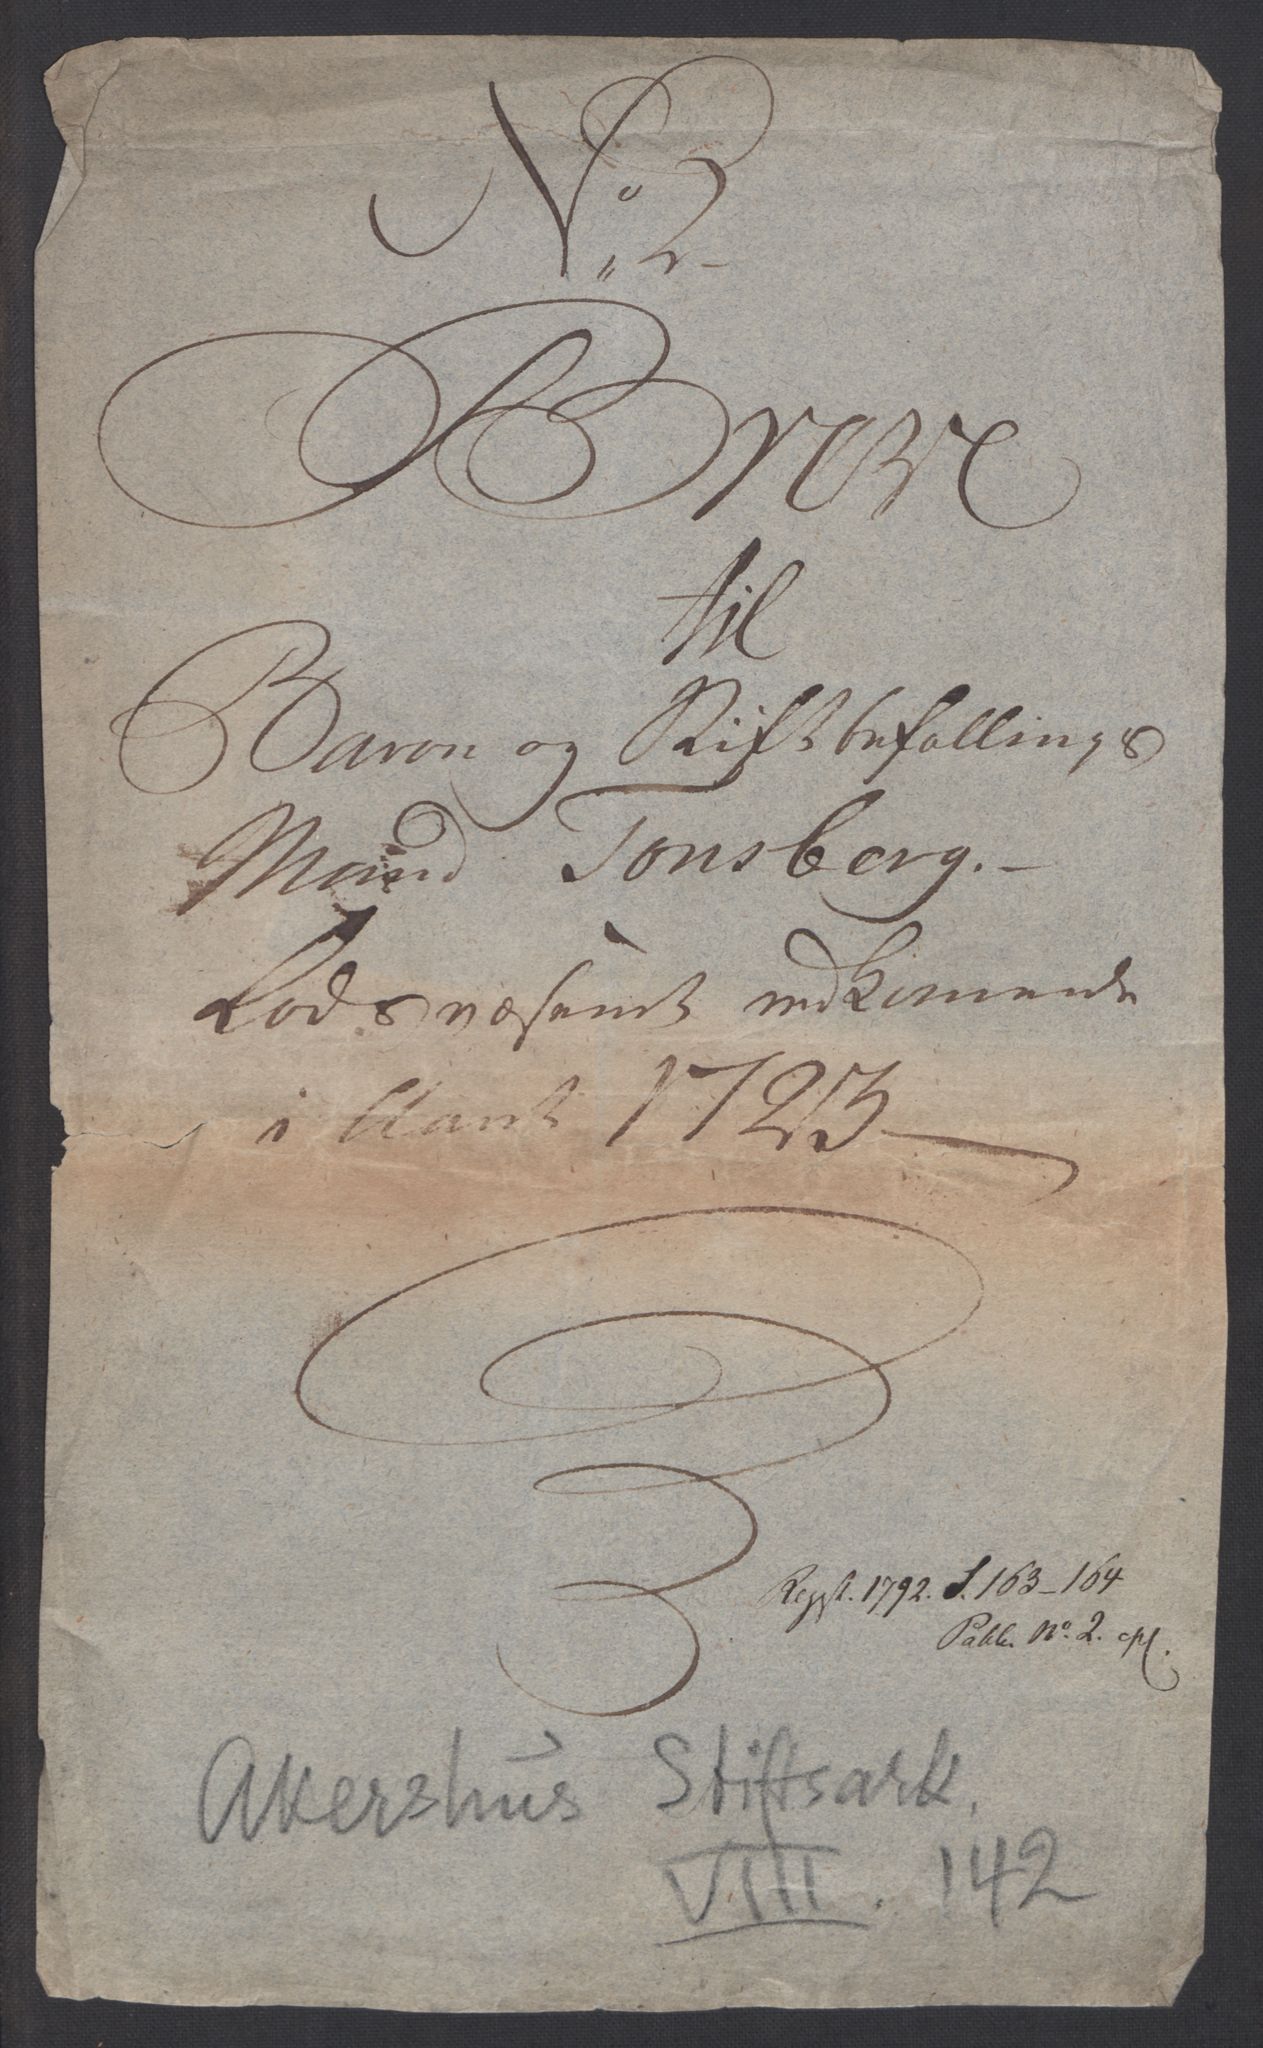 No. 2
Breve
til
Baron og Stiftbefallings
Mand Tonsberg.
Lodsvæsenet vedkomende
i Aaret 1723
Regist. 1792. S. 163-164
Pakke No. 2.
Akershus Stiftsark.
VIII. 142